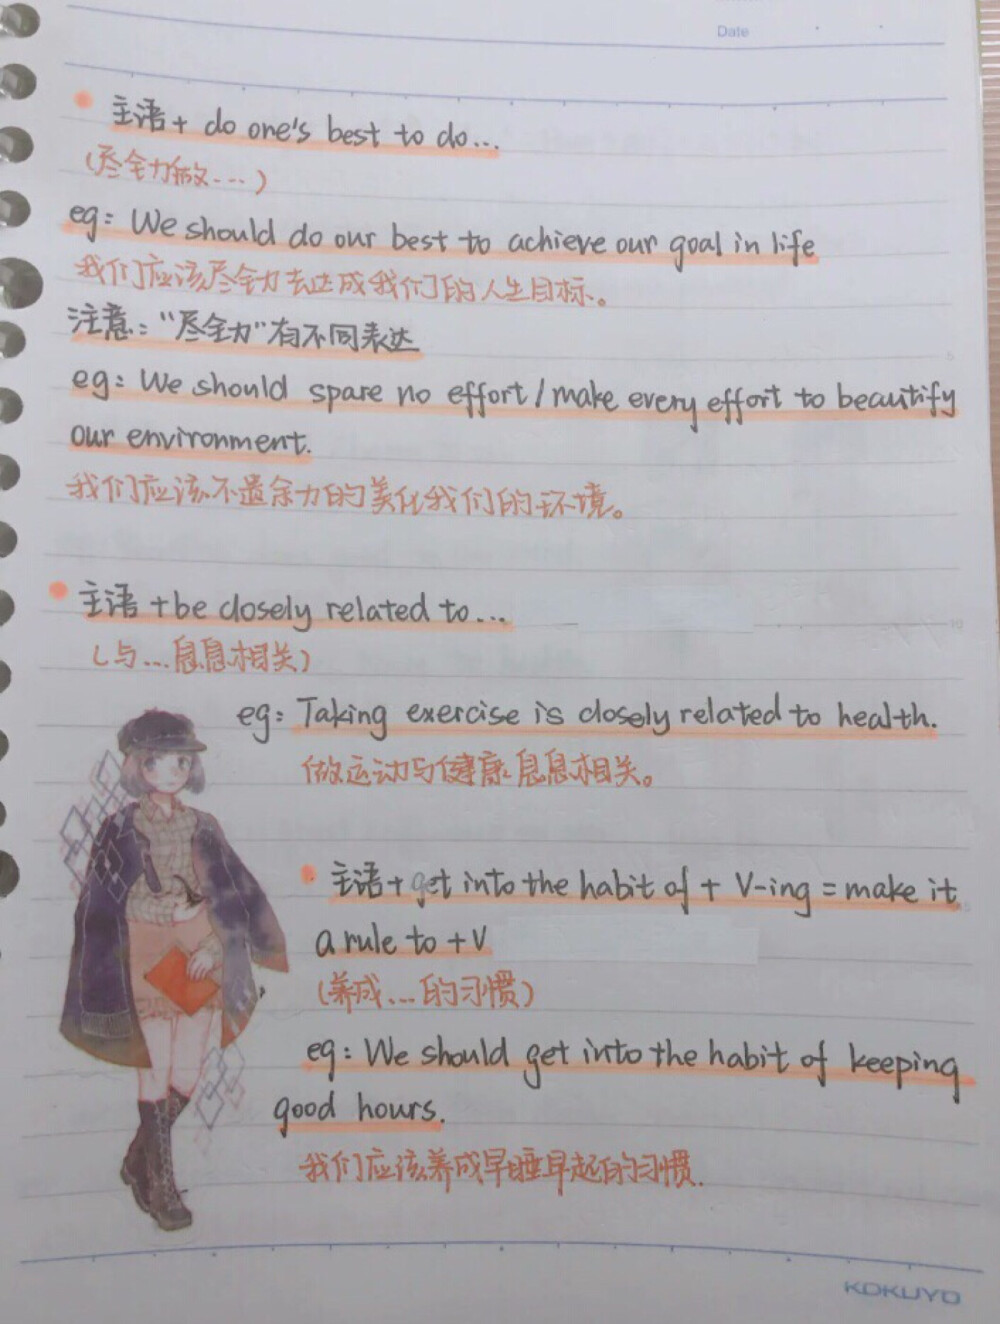 Date
主语+ do one's best to do...
(尽全力做...)
eg: We should do our best to achieve our goal in life
我们应该尽全力去达成我们的人生目标。
注意:“尽全力”有不同表达
eg: We should spare no effort/make every effort to beautify
our environment.
我们应该不遗余力的美化我们的环境。
主语+be closely related to...
(与...息息相关)
eg: Taking exercise is closely related to health.
做运动与健康息息相关。
主语+get into the habit of + V-ing = make it
a rule to + V
(养成...的习惯)
eg: We should get into the habit of keeping
good hours.
我们应该养成早睡早起的习惯.
KOKUYO